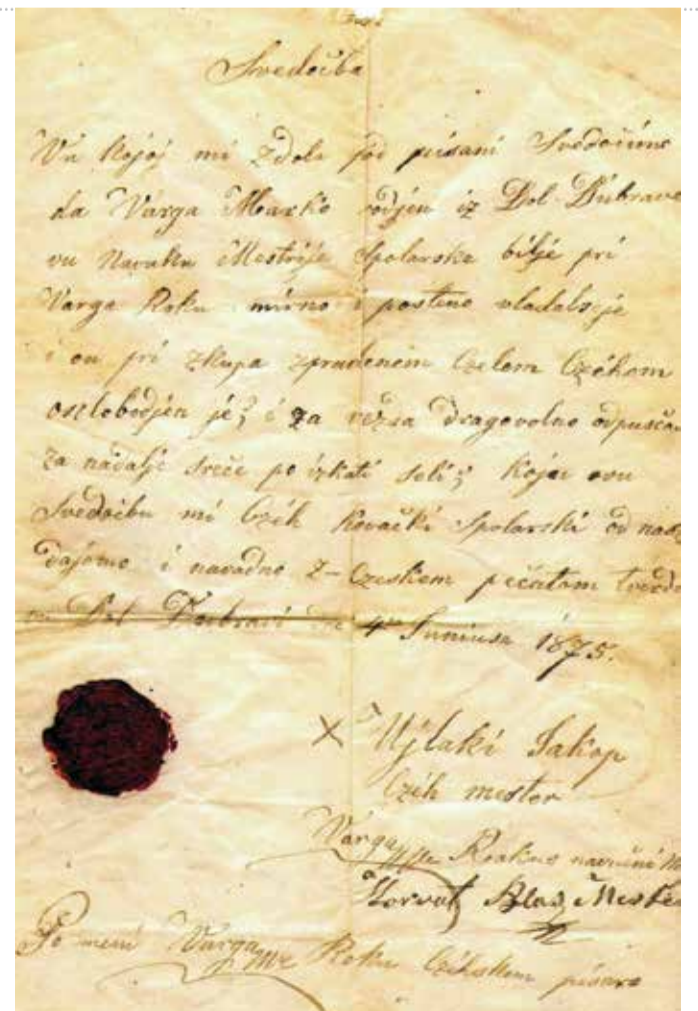 Svedočba
Va Kojoj mi zdola pod pisani Svedočimo
da Varga Marko rodjen iz Dol Dubrave
vu Navuku Meštrije Spolarske bilje pri
Varga Roku mirno i pošteno vladalseje
i on pri zkupa zpravlenem Czelem Czéhom
oszlobodjen je; i za dragovolno
za nadalje sreče po izkati seli; Koju ovu
Svedočbu mi Czéh Kovački Spolarski od nas
dajemo i navadno z-Czeskem pečatom
Dol Dubravi 4 Juniusa 1875.
X Ujlaki Jakop
Czéh mester
Varga Rokus
Horvat Blaž Mester
Po meni Varga Roku Czéhskem pisaru